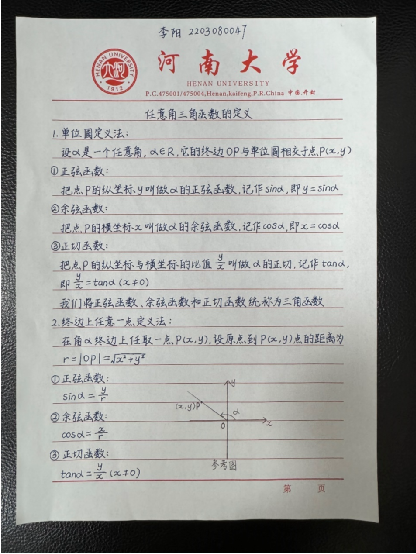 李阳 2203080047
HENAN UNIVERSITY
1912
河南大学
HENAN UNIVERSITY
P.C.475001/475004,Henan,kaifeng.P.R.China 中国.开封
任意角三角函数的定义
1.单位圆定义法:
设α是一个任意角,α∈R,它的终边OP与单位圆相交于点P(x,y)
①正弦函数:
把点P的纵坐标y叫做α的正弦函数,记作sinα,即y=sinα
②余弦函数:
把点P的横坐标x叫做α的余弦函数,记作cosα,即x=cosα
③正切函数:
把点P的纵坐标与横坐标的比值 y/x 叫做α的正切,记作tanα,
即 y/x = tanα (x≠0)
我们将正弦函数、余弦函数和正切函数统称为三角函数
2.终边上任意一点定义法:
在角α终边上任取一点P(x,y),设原点到P(x,y)点的距离为
r=|OP|=√x²+y²
①正弦函数:
sinα = y/r
②余弦函数:
cosα = x/r
③正切函数:
tanα = y/x (x≠0)
y
(x,y)P
α
O
x
参考图
第 页